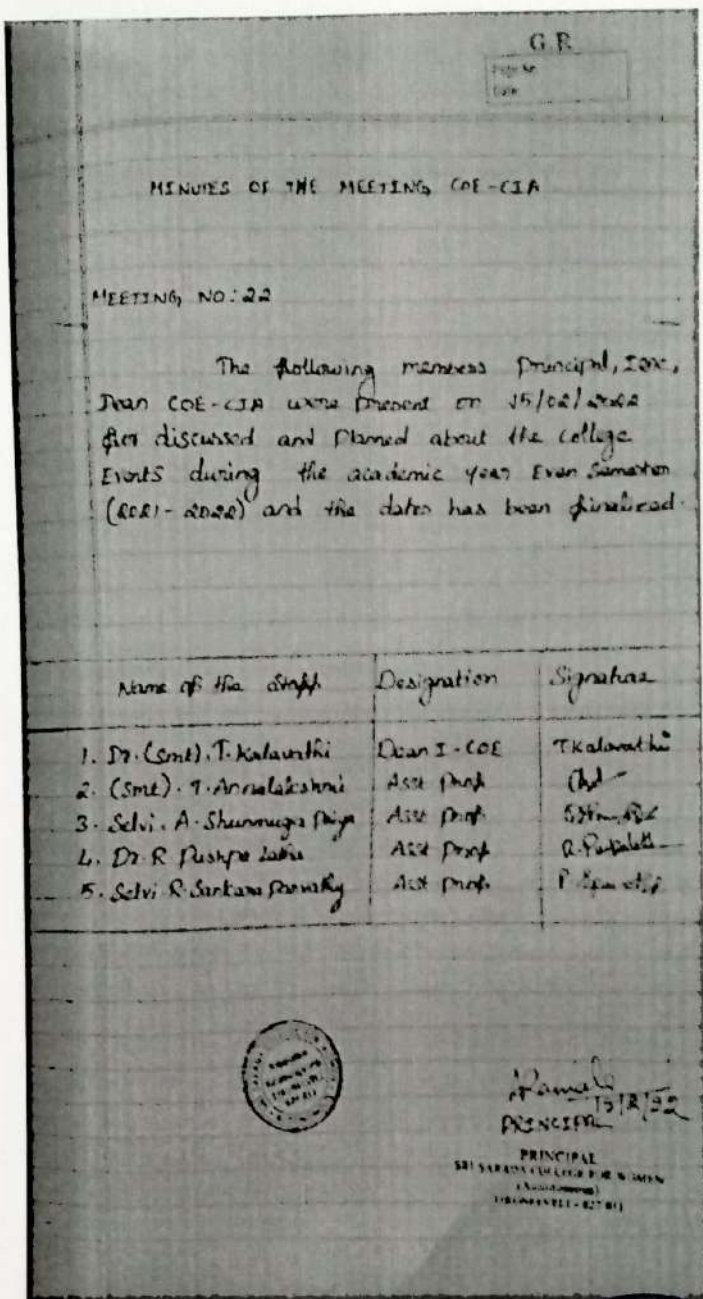 G.R
Page No
Date
MINUTES OF THE MEETING COE-CIA
MEETING NO: 22
The following members Principal,
Dean COE-CIA were present on 15/02/2022
for discussed and Planned about the College
Events during the academic year Even Semester
(2021-2022) and the dates has been finalized.
Name of the Staff Designation Signature
1. Dr. (Smt). T. Kalavathi Dean I - COE T Kalavathi
2. (Smt). T. Annalakshmi Asst Prof
3. Selvi. A. Shunmuga Priya Asst Prof
4. Dr. R. Pushpa Latha Asst Prof
5. Selvi R. Sankara Parvathy Asst Prof
15/2/22
PRINCIPAL
PRINCIPAL
SRI SARADA COLLEGE FOR WOMEN
(Autonomous)
TIRUNELVELI - 627 011